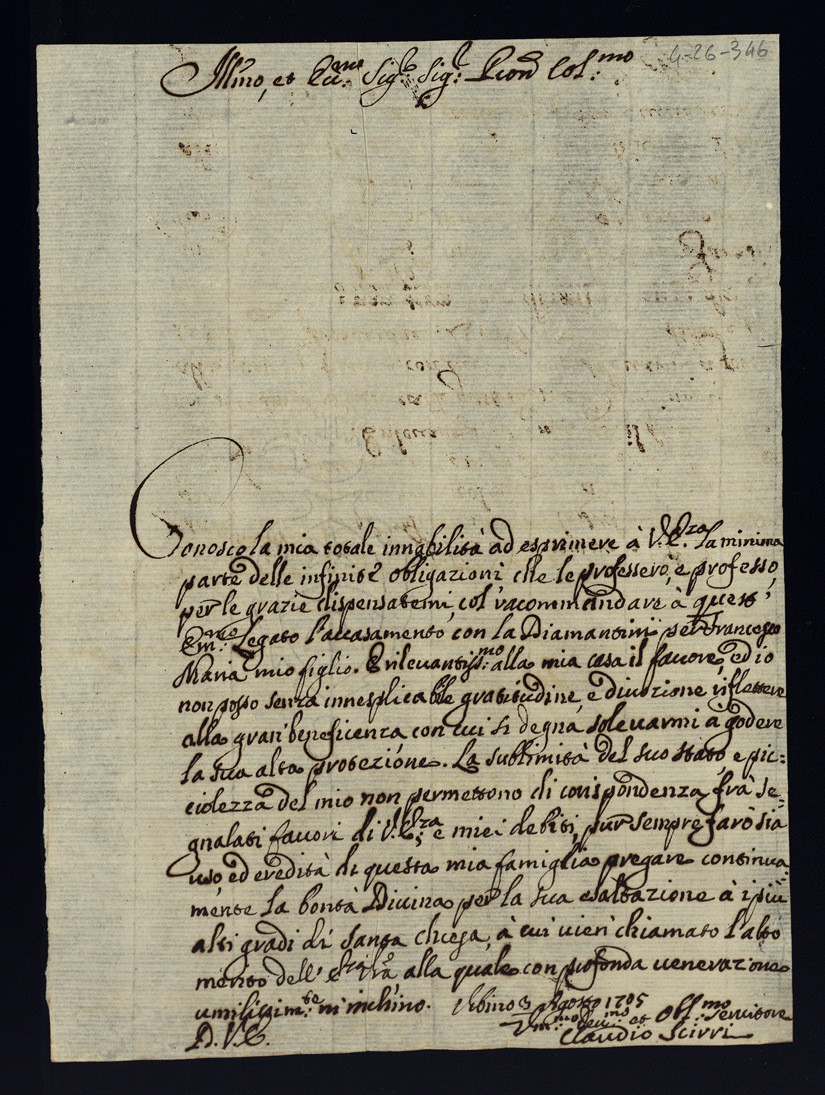 4-26-346
Ill.mo, et Ecc.mo Sig.r Sig.r P.ron Col.mo
Conosco la mia totale innabilità ad esprimere à V. E.za la minima
parte delle infinite obligazioni che le professerò, e professo,
per le grazie dispensatemi col' raccommandare à quest'
Em.mo Legato l'accasamento con la Diamantini per Francesco
Maria mio figlio. È rilevantiss.mo alla mia casa il favore, ed io
non posso senza innesplicabile gratitudine, e divozione riflettere
alla gran beneficenza con cui si degna solevarmi à godere
la sua alta protezione. La sublimità del suo stato, e pic:
ciolezza del mio non permettono di corispondenza frà se=
gnalati favori di V. E.za, e miei debiti, pur sempre farò sia
uso, ed eredità di questa mia famiglia pregare continua
mente la bontà Divina per la sua esaltazione à i più
alti gradi di Santa chiesa, à cui vien' chiamato l'alto
merito dell' E.za V.ra alla quale con profonda venerazione
umilissim.te m'inchino. Urbino 3 Agosto 1705
D. V. E.
Um.mo Dev.mo et Obl.mo Servitore
Claudio Scirri